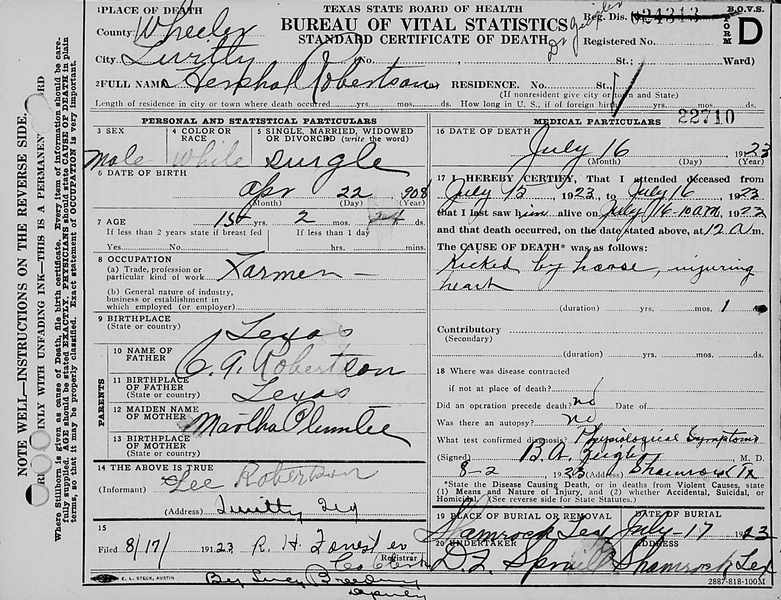 TEXAS STATE BOARD OF HEALTH
BUREAU OF VITAL STATISTICS
STANDARD CERTIFICATE OF DEATH
B.O.V.S.
FORM D
1 PLACE OF DEATH
County Wheeler
City No. St.; Ward)
Reg. Dis. 24313
Registered No.
2 FULL NAME Robertson RESIDENCE. No. St.
(If nonresident give city or town and State)
Length of residence in city or town where death occurred yrs. mos. ds. How long in U. S., if of foreign birth yrs. mos. ds.
PERSONAL AND STATISTICAL PARTICULARS
3 SEX
male
4 COLOR OR RACE
White
5 SINGLE, MARRIED, WIDOWED OR DIVORCED (write the word)
single
6 DATE OF BIRTH
Apr 22 908
(Month) (Day) (Year)
7 AGE
15 yrs. 2 mos. 24 ds.
If less than 2 years state if breast fed If less than 1 day
Yes No hrs. mins.
8 OCCUPATION
(a) Trade, profession or particular kind of work Farmer
(b) General nature of industry, business or establishment in which employed (or employer)
9 BIRTHPLACE
(State or country) Texas
PARENTS
10 NAME OF FATHER
C. A. Robertson
11 BIRTHPLACE OF FATHER
(State or country)
Texas
12 MAIDEN NAME OF MOTHER
Martha Plumlee
13 BIRTHPLACE OF MOTHER
(State or country)
14 THE ABOVE IS TRUE
(Informant) Lee Robertson
(Address)
15
Filed 8/17/ 191 23 R. H. Forester
Registrar
Co Clerk
By Lucy
Deputy
E. L. STECK, AUSTIN
MEDICAL PARTICULARS
22710
16 DATE OF DEATH
July 16 1923
(Month) (Day) (Year)
17 I HEREBY CERTIFY, That I attended deceased from
July 15, 1923 to July 16 1923
that I last saw him alive on July 16 10 am 1923
and that death occurred, on the date stated above, at 12 a/m.
The CAUSE OF DEATH* was as follows:
Kicked by hoose, injuring
heart
(duration) yrs. mos. 1 ds.
Contributory
(Secondary)
(duration) yrs. mos. ds.
18 Where was disease contracted
if not at place of death?
Did an operation precede death? no Date of
Was there an autopsy? no
What test confirmed diagnosis? Physiological Symptoms
(Signed) B. A. Zeigler M. D.
8-2 1923 (Address) Shamrock Tx
*State the Disease Causing Death, or in deaths from Violent Causes, state (1) Means and Nature of Injury, and (2) whether Accidental, Suicidal, or Homicidal. (See reverse side for Statement)
19 PLACE OF BURIAL OR REMOVAL
Shamrock Tex
DATE OF BURIAL
July-17 1923
20 UNDERTAKER
ADDRESS
Shamrock Tex
2887-818-100M
NOTE WELL—INSTRUCTIONS ON THE REVERSE SIDE.
INLY WITH UNFADING INK—THIS IS A PERMANEN ORD
Where Stillborn is given as cause of Death, file birth certificate. Every item of information should be care-
fully supplied. AGE should be stated EXACTLY. PHYSICIANS should state CAUSE OF DEATH in plain
terms, so that it may be properly classified. Exact statement of OCCUPATION is very important.